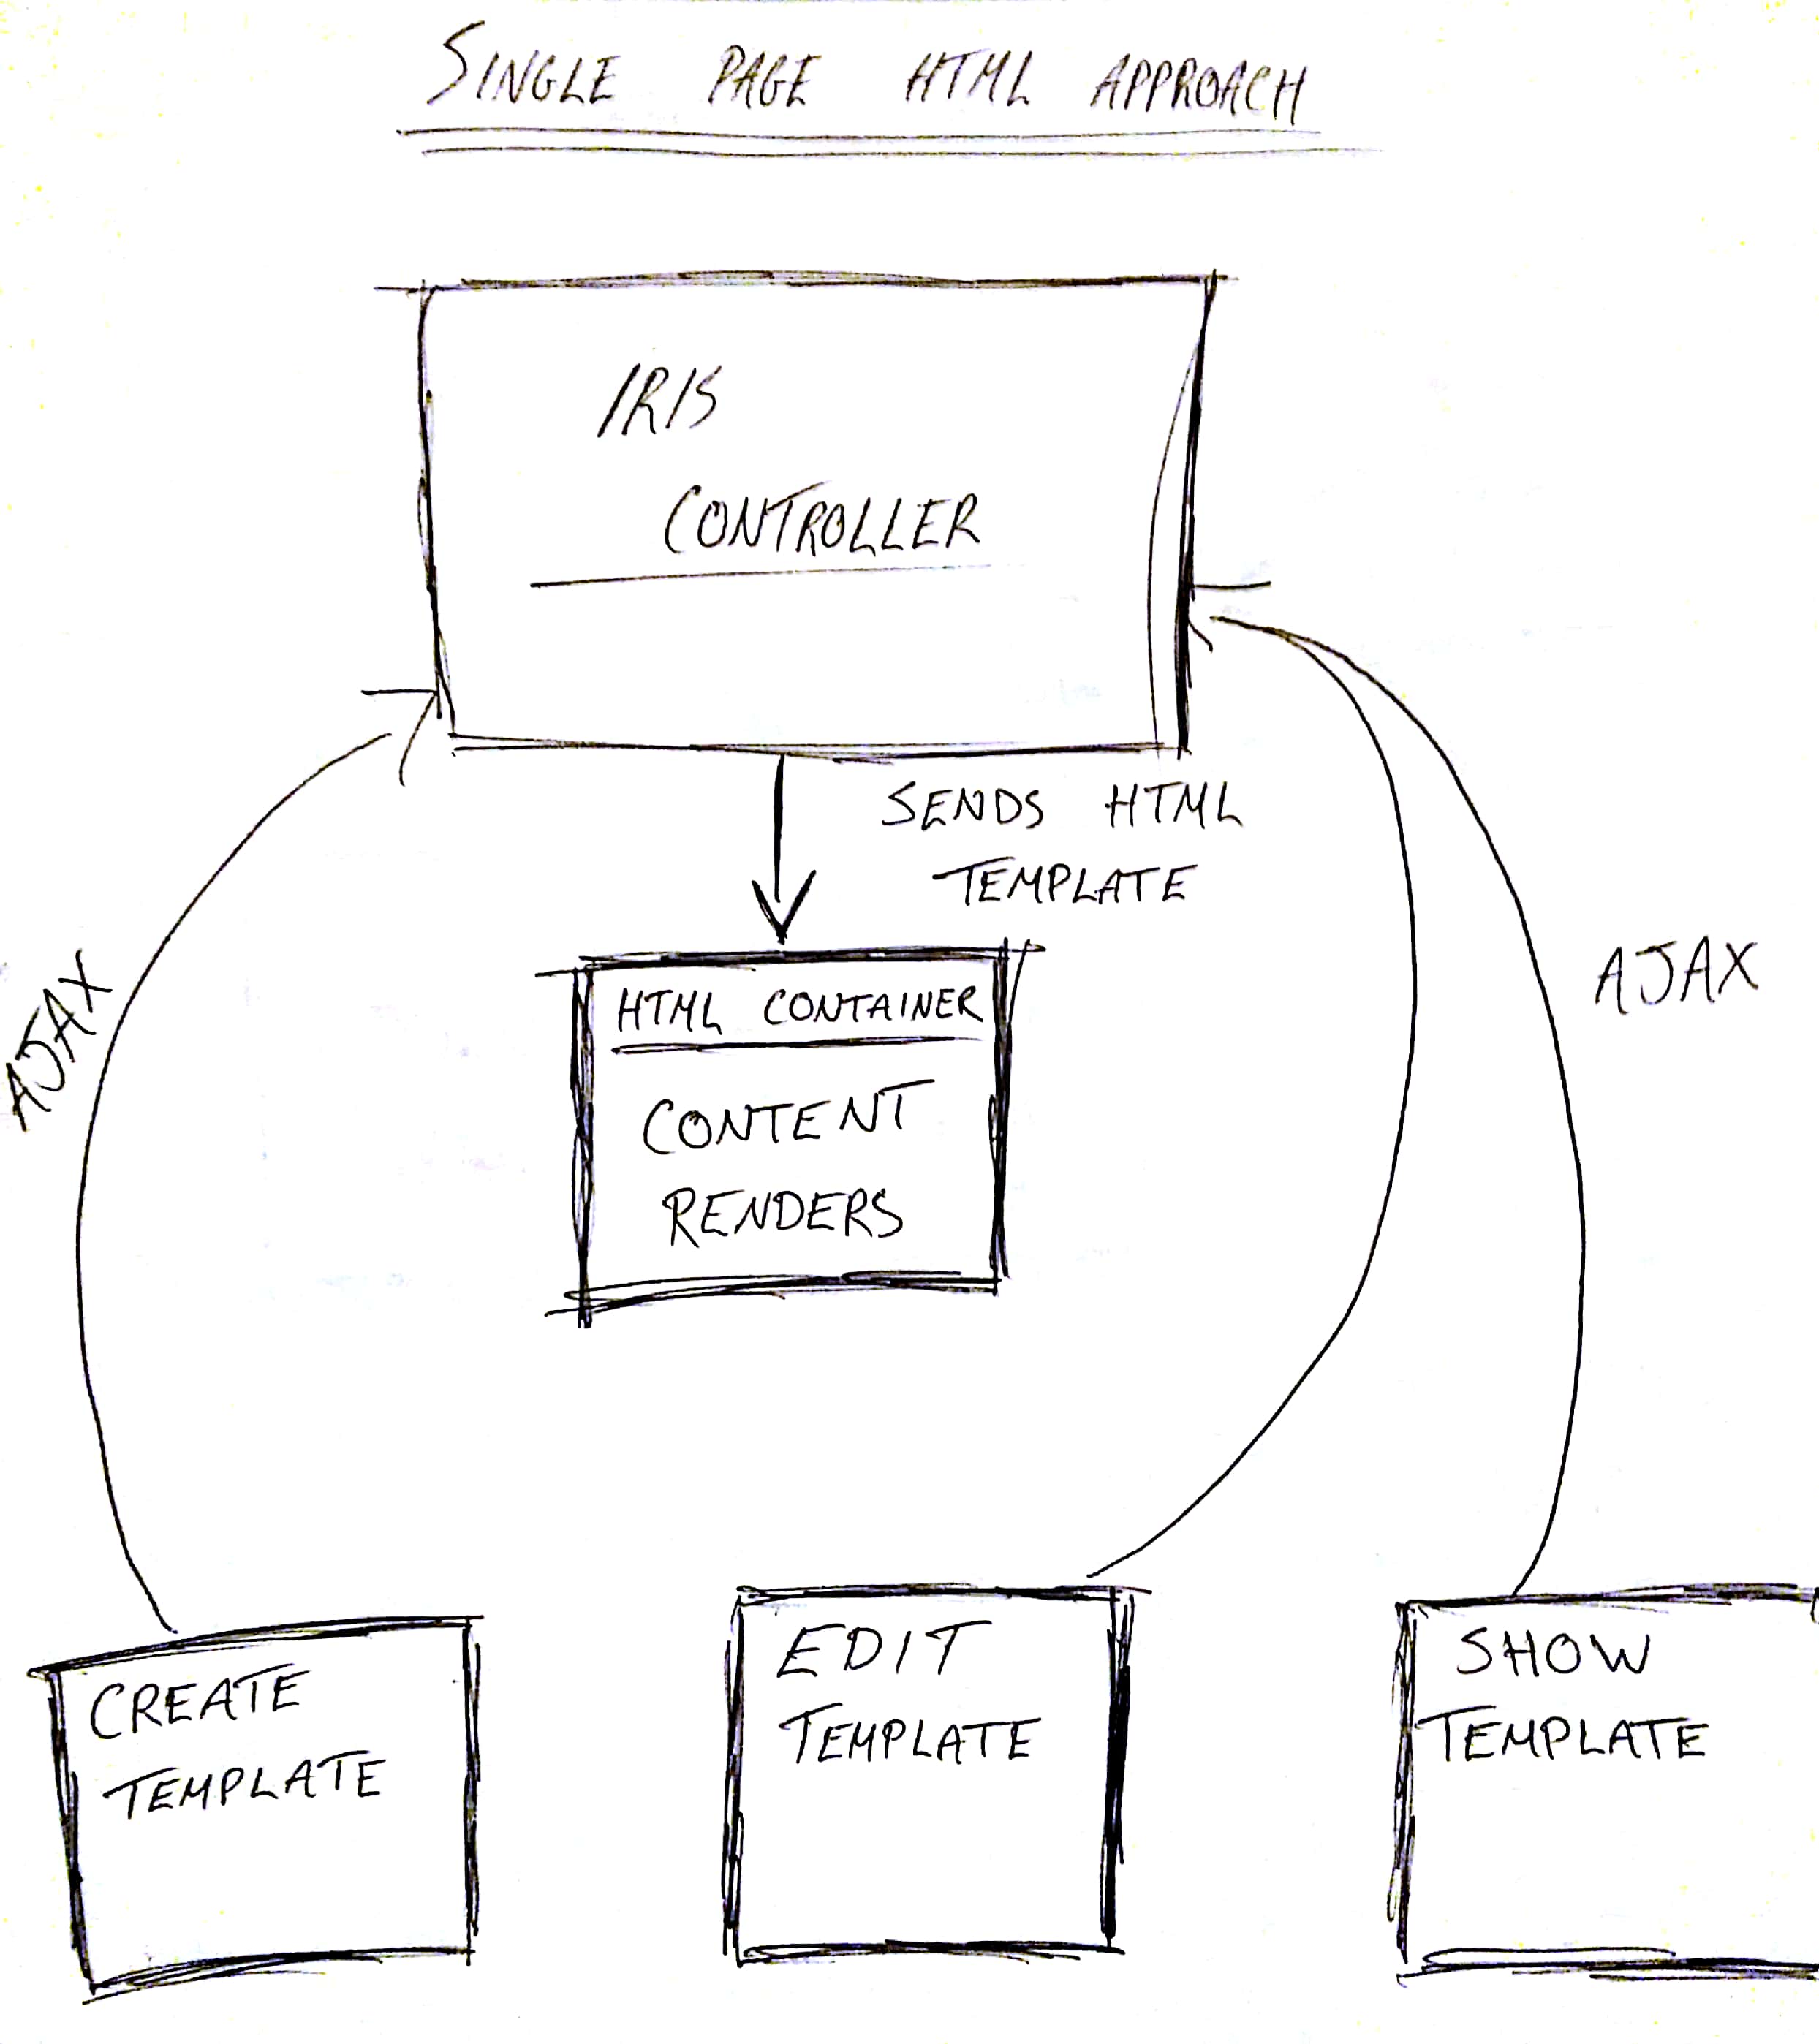 SINGLE PAGE HTML APPROACH
IRIS
CONTROLLER
SENDS HTML
TEMPLATE
HTML CONTAINER
CONTENT
RENDERS
AJAX
AJAX
CREATE
TEMPLATE
EDIT
TEMPLATE
SHOW
TEMPLATE